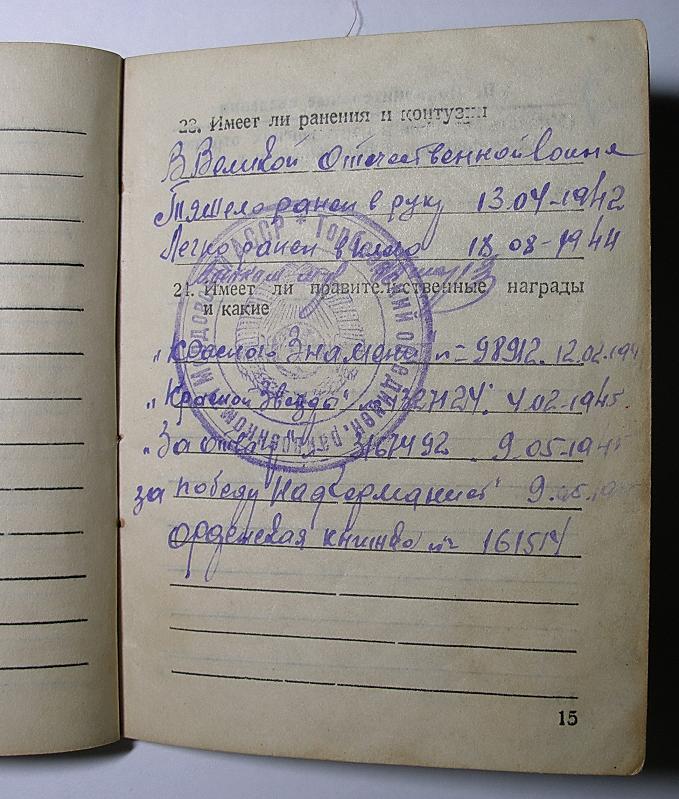 23. Имеет ли ранения и контузии
В Великой Отечественной воине
Тяшело ранен в руку 13.04-1942
Легко ранен в 18 08-1944
21. Имеет ли правительственные награды
и какие
"Красного Знамени" №= 98912. 12.02-194
"Красной Звезды" 4.02-1945
"За отвагу" 3167492 9.05-1945
за победу Над Германией" 9.05.1945
орденская книжка №
15